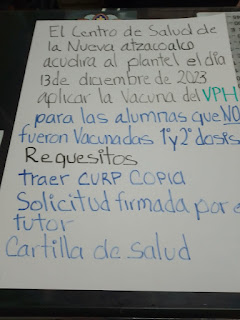 El Centro de Salud de
la Nueva atzacoalco
acudira al plantel el día
13 de diciembre de 2023
aplicar la Vacuna del VPH
para las alumnas que NO
fueron Vacunadas 1ª y 2ª dosis
Requesitos
traer CURP COPIA
Solicitud firmada por e
tutor
Cartilla de salud